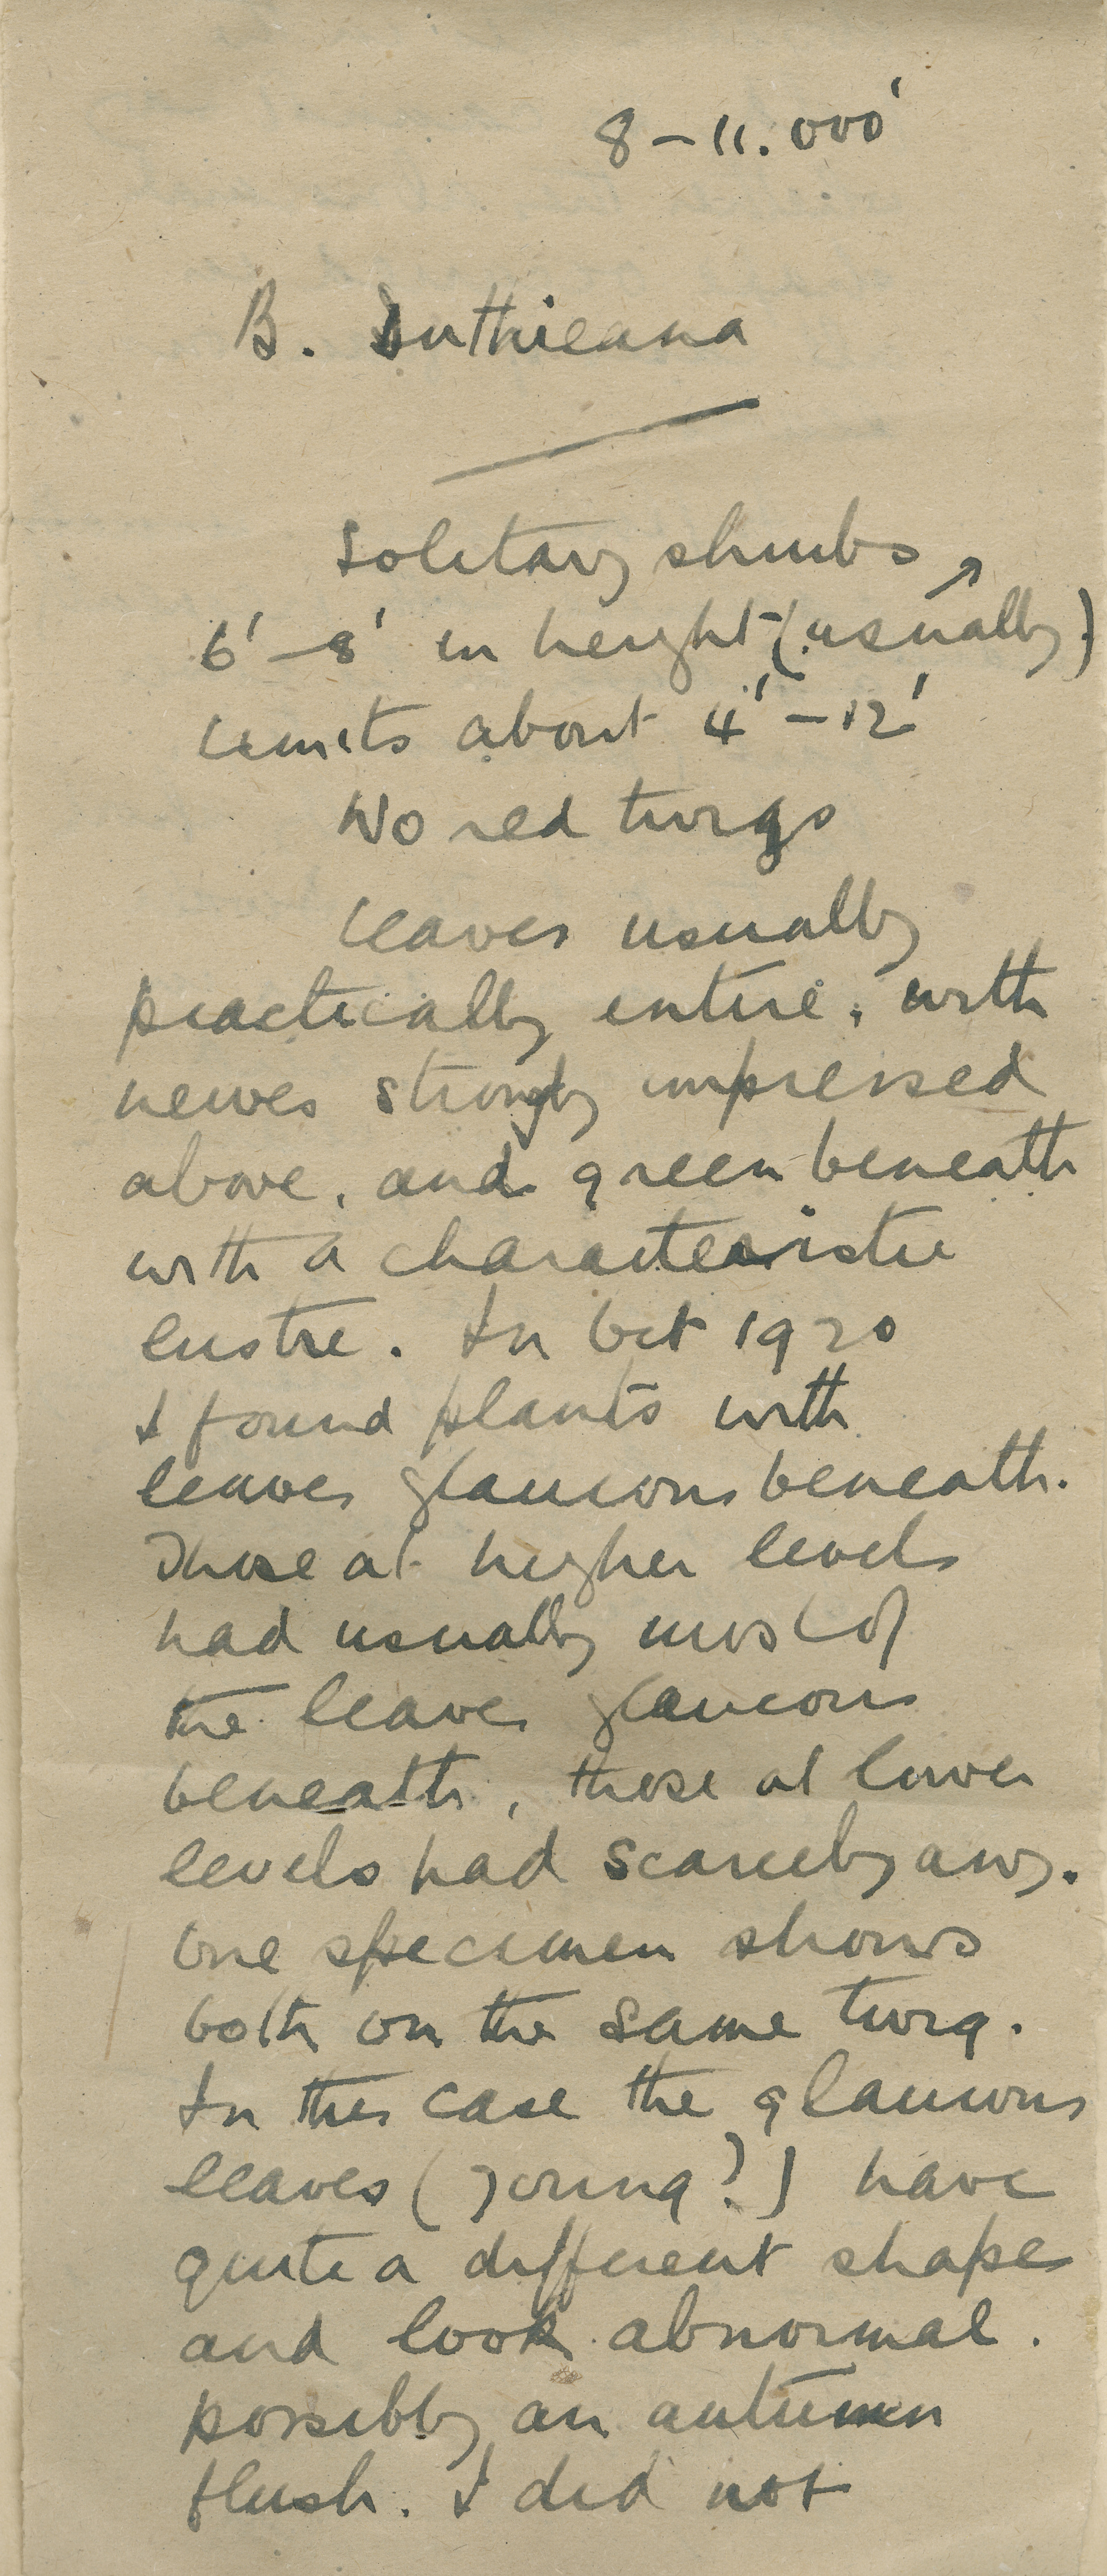 8 – 11.000'
B. Duthieana
Solitary shrubs
6' – 8' in height (usually)
Limits about 4' – 12'
No red twigs
Leaves usually
practically entire, with
nerves strongly impressed
above, and green beneath
with a characteristic
lustre. In Oct 1920
I found plants with
leaves glaucous beneath.
Those at higher levels
had usually most of
the leaves glaucous
beneath, those at lower
levels had scarcely any.
One specimen shows
both on the same twig.
In this case the glaucous
leaves (young?) have
quite a different shape
and look abnormal.
possibly an autumn
flush. I did not